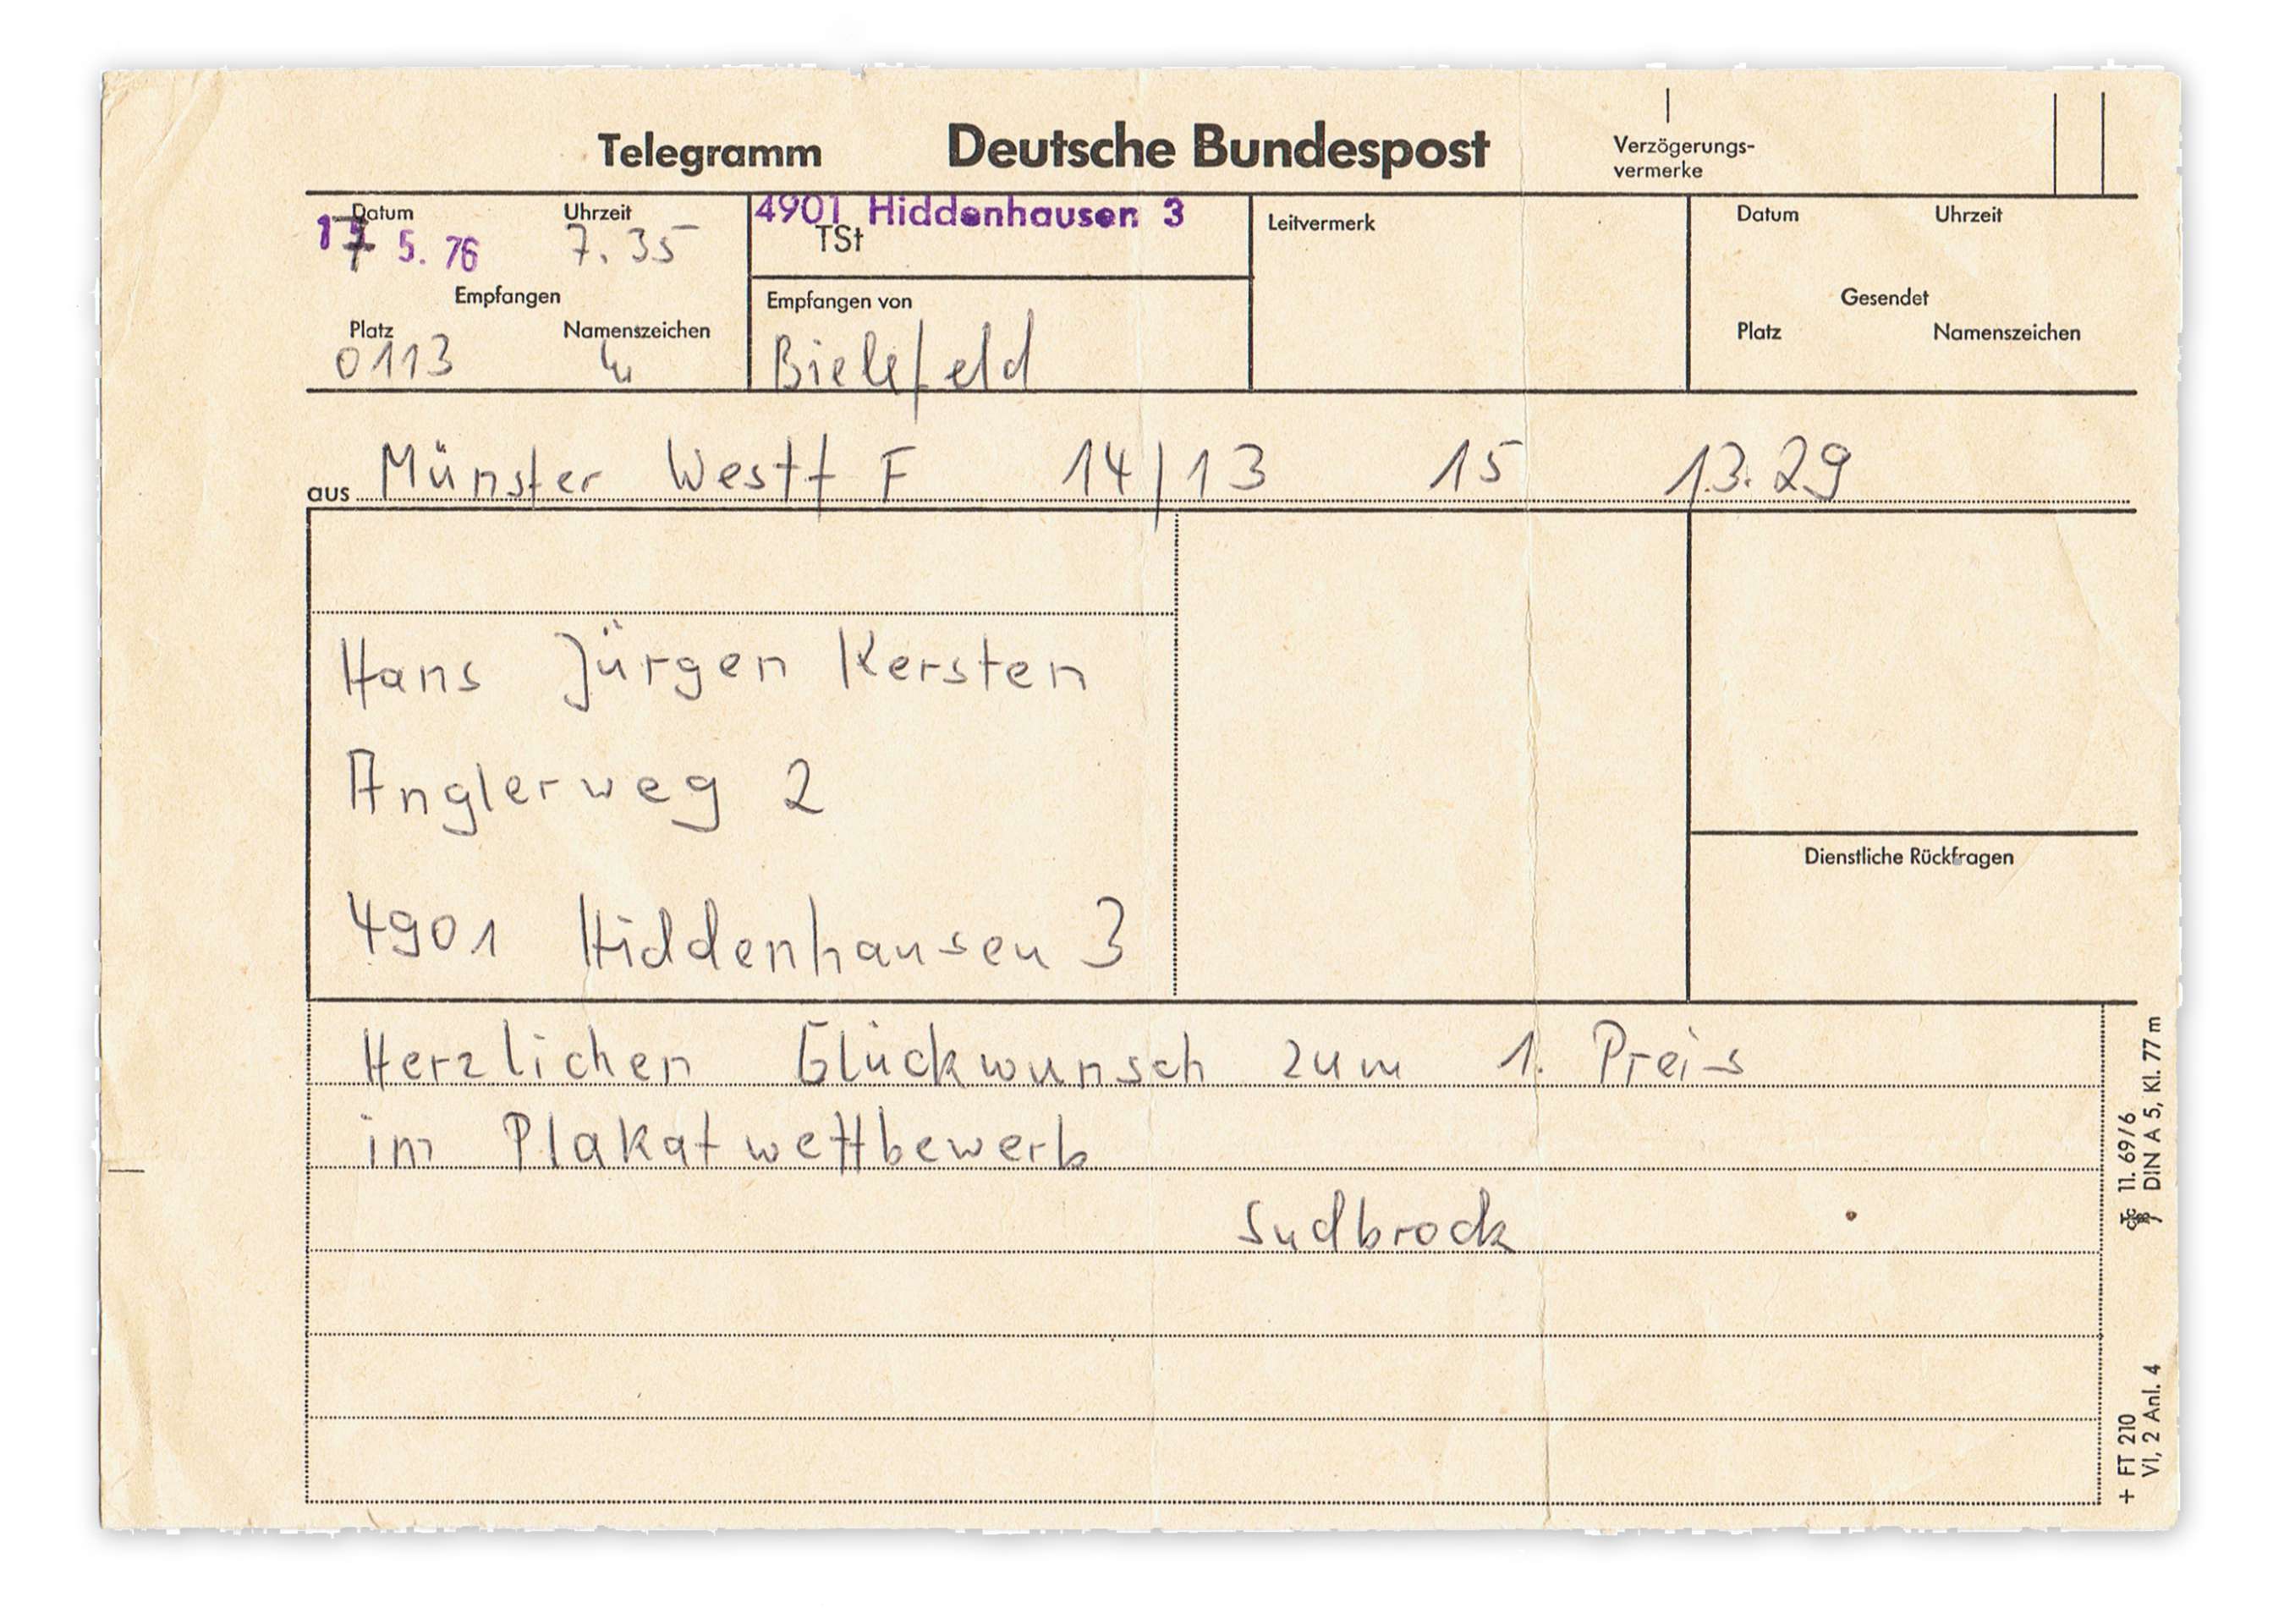 Telegramm Deutsche Bundespost
Verzögerungs-
vermerke
Datum Uhrzeit
17 5. 76 7.35
Empfangen
Platz Namenszeichen
0113
4901 Hiddenhausen 3
TSt
Empfangen von
Bielefeld
Leitvermerk
Datum Uhrzeit
Gesendet
Platz Namenszeichen
aus Münster Westf F 14/13 15 13.29
Hans Jürgen Kersten
Anglerweg 2
4901 Hiddenhausen 3
Dienstliche Rückfragen
Herzlichen Glückwunsch zum 1. Preis
im Plakatwettbewerb
Sudbrock
11. 69/6
DIN A 5, Kl. 77 m
+ FT 210
VI, 2 Anl. 4